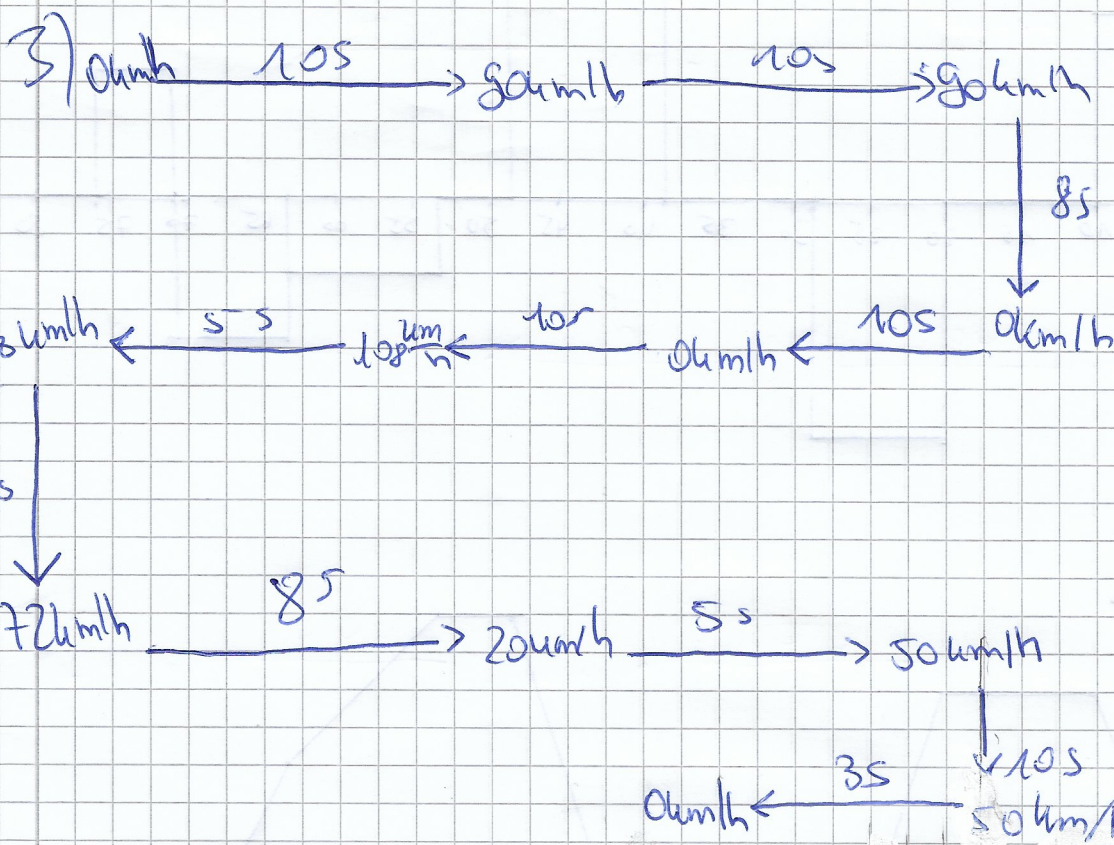 3) 0km/h 10s 90km/h 10s 90km/h
8s
km/h 5s 108 km/h 10s 0km/h 10s 0km/h
s
72km/h 8s 20km/h 5s 50km/h
10s
0km/h 3s 50km/